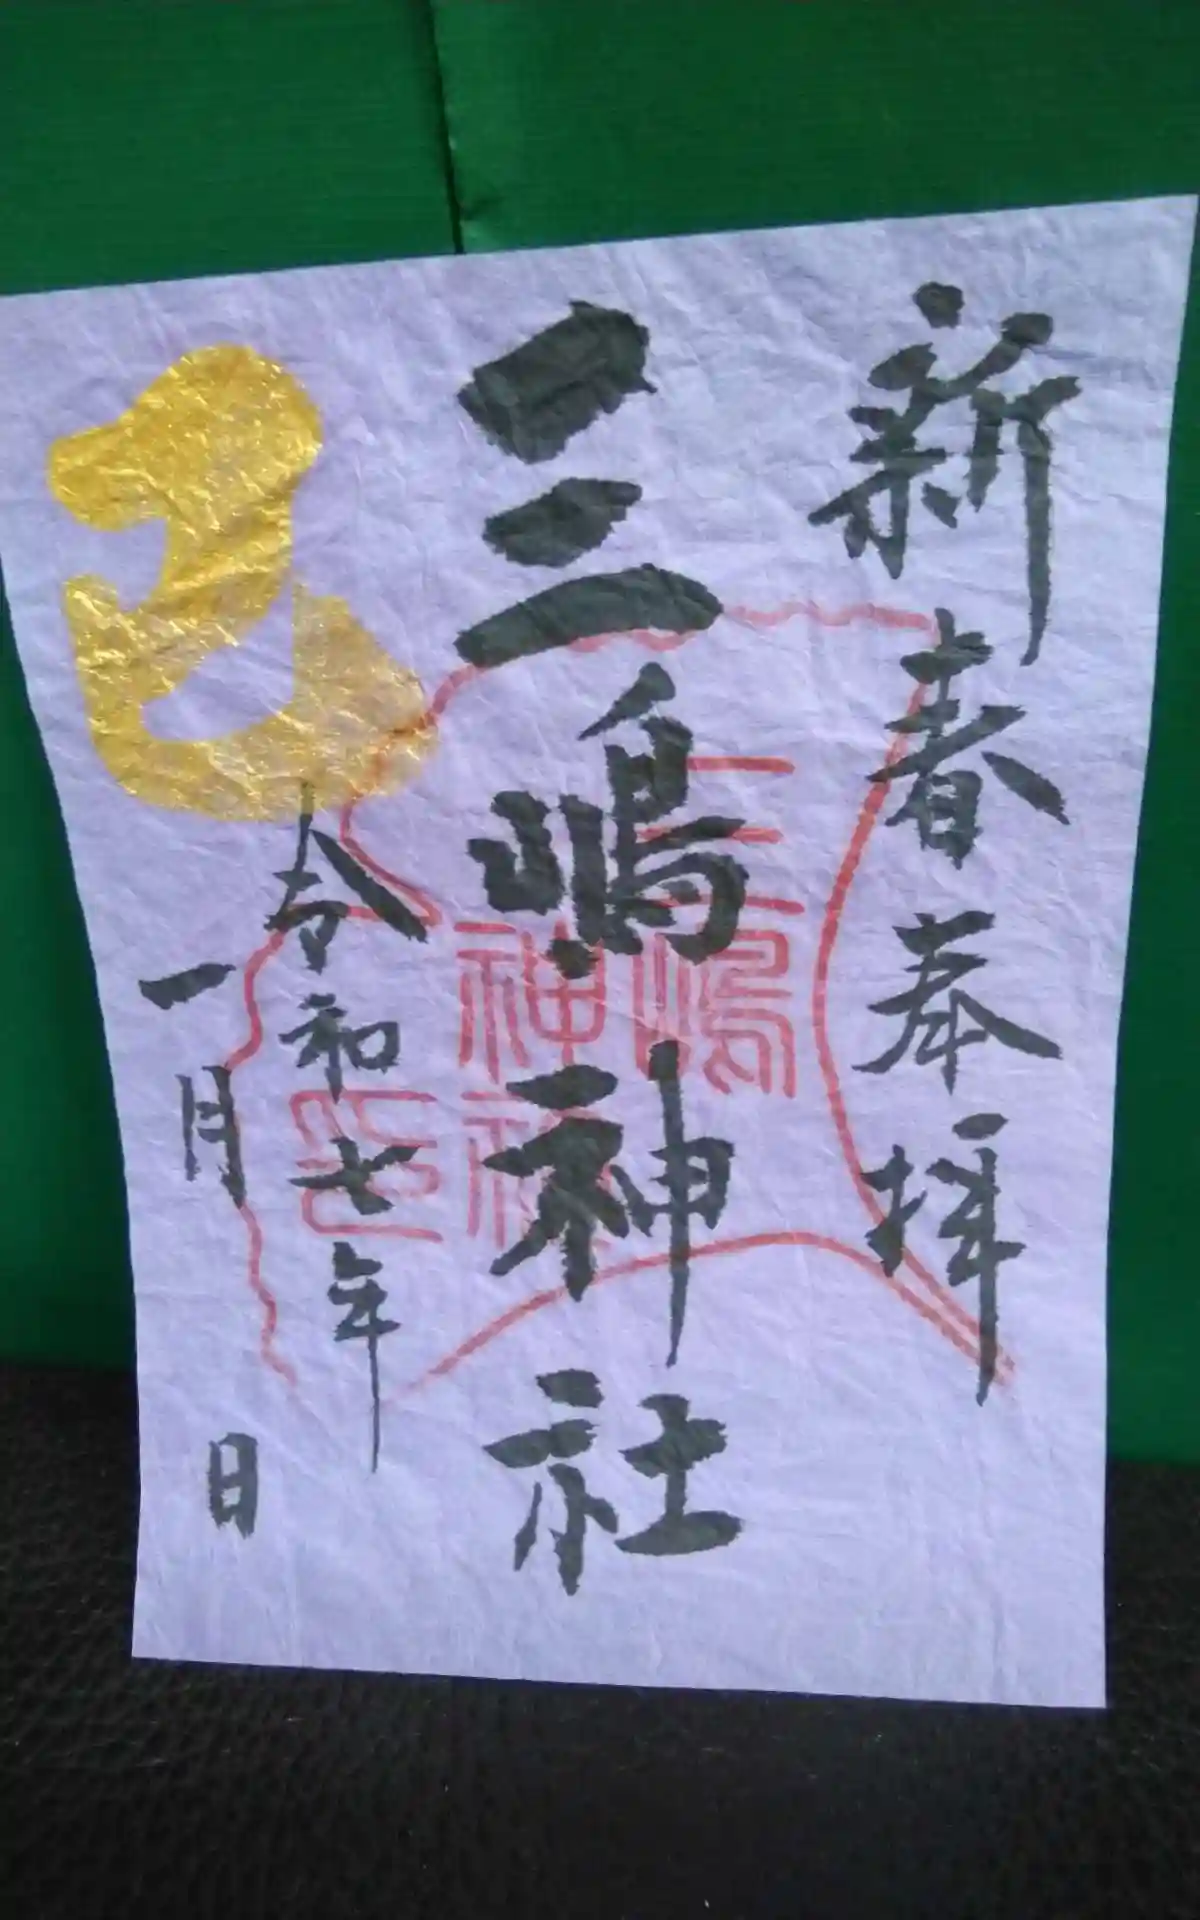 新春奉拝
三嶋神社
三嶋
神社
印
巳
令和七年
一月 日